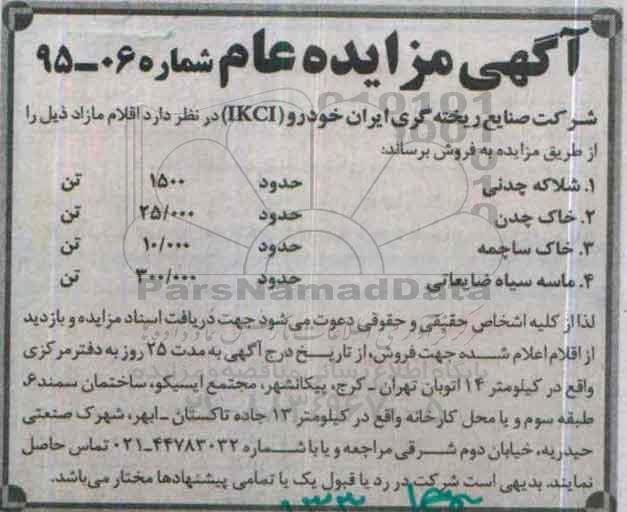 آگهی مزایده عام شماره ۰۶-۹۵
شرکت صنایع ریخته گری ایران خودرو (IKCI) در نظر دارد اقلام مازاد ذیل را
از طریق مزایده به فروش برساند:
۱. شلاکه چدنی حدود ۱۵۰۰ تن
۲. خاک چدن حدود ۲۵/۰۰۰ تن
۳. خاک ساچمه حدود ۱۰/۰۰۰ تن
۴. ماسه سیاه ضایعاتی حدود ۳۰۰/۰۰۰ تن
ParsNamadData
لذا از کلیه اشخاص حقیقی و حقوقی دعوت می شود جهت دریافت اسناد مزایده و بازدید
از اقلام اعلام شده جهت فروش، از تاریخ درج آگهی به مدت ۲۵ روز به دفتر مرکزی
واقع در کیلومتر ۱۴ اتوبان تهران - کرج، پیکانشهر، مجتمع ایسیکو، ساختمان سمند۶،
طبقه سوم و یا محل کارخانه واقع در کیلومتر ۱۳ جاده تاکستان - ابهر، شهرک صنعتی
حیدریه، خیابان دوم شرقی مراجعه و یا با شماره ۴۴۷۸۳۰۳۲-۰۲۱ تماس حاصل
نمایند. بدیهی است شرکت در رد یا قبول یک یا تمامی پیشنهادها مختار می‌باشد.